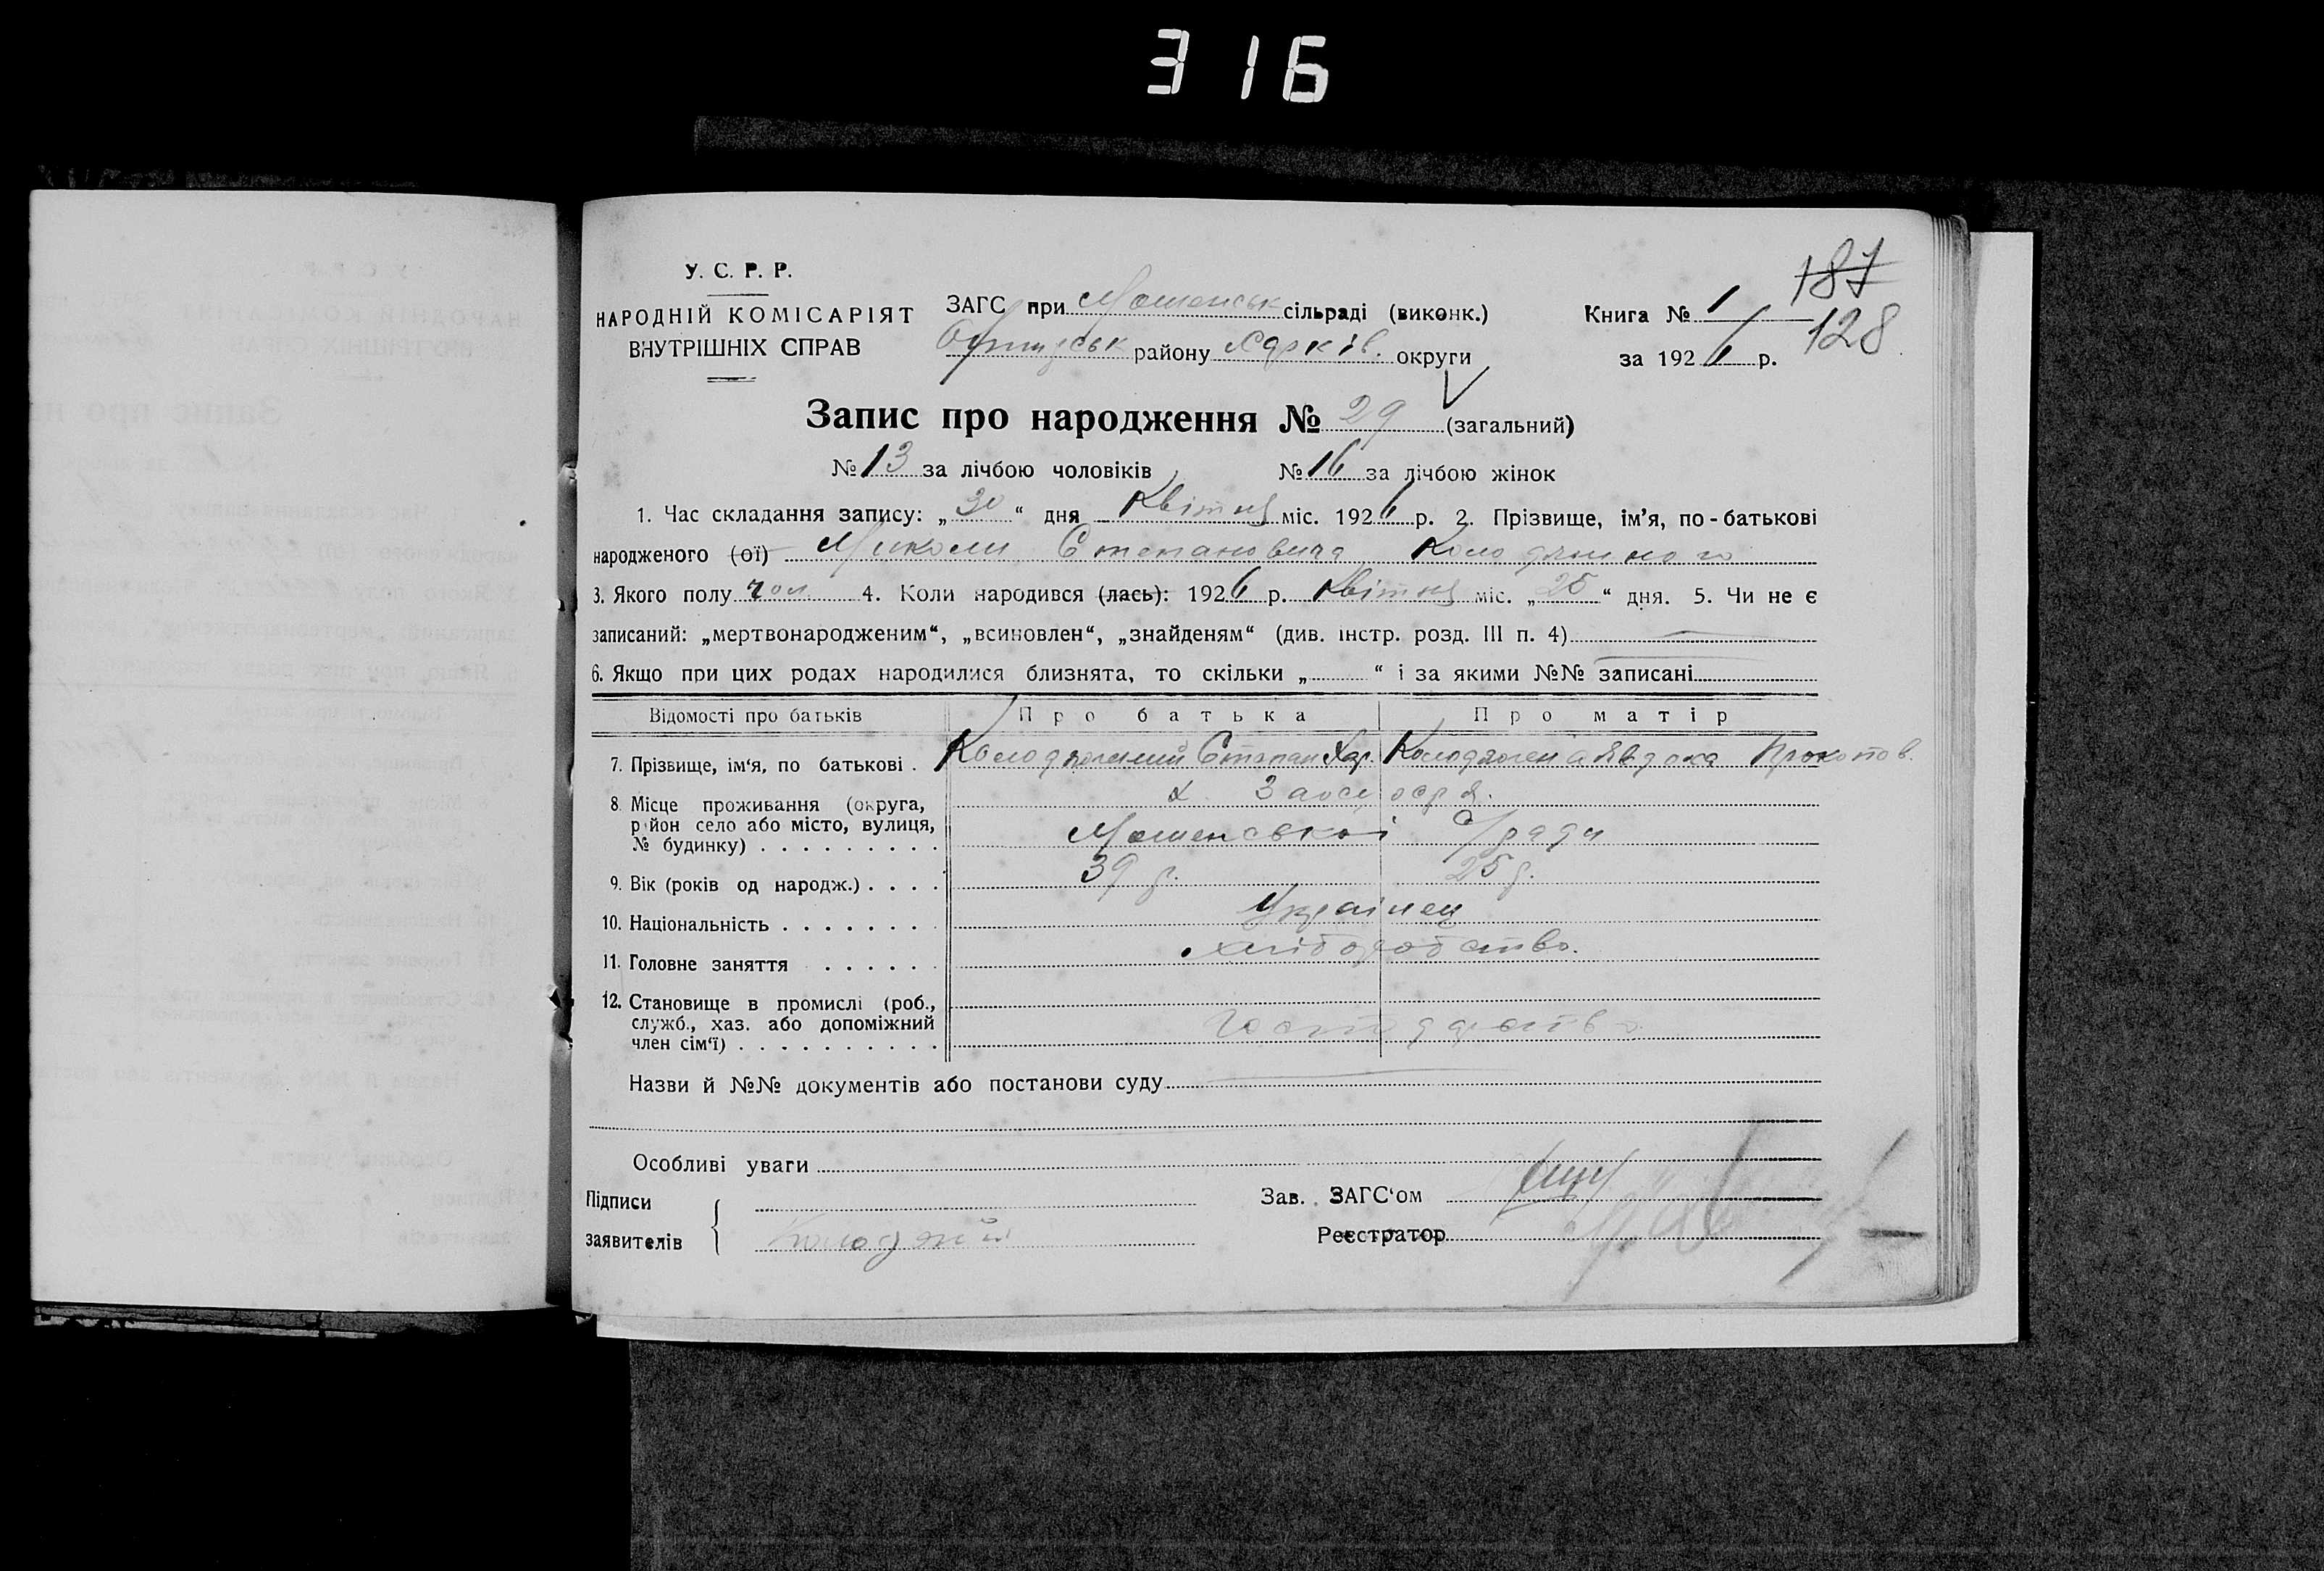 316
187
У. С. Р. Р.
НАРОДНІЙ КОМІСАРІЯТ
ВНУТРІШНІХ СПРАВ
ЗАГС при сільраді (виконк.)
району Харків. округи
Книга № 1
128
за 1926 р.
Запис про народження № 29 (загальний)
№ 13 за лічбою чоловіків № 16 за лічбою жінок
1. Час складання запису: „30“ дня Квітня міс. 1926 р. 2. Прізвище, ім’я, по-батькові
народженого (ої) Миколи Степановича
3. Якого полу чол. 4. Коли народився (лась): 1926 р. Квітня міс. „25“ дня. 5. Чи не є
записаний: „мертвонародженим“, „всиновлен“, „знайденям“ (див. інстр. розд. III п. 4)
6. Якщо при цих родах народилися близнята, то скільки „ “ і за якими №№ записані
Відомості про батьків Про батька Про матір
7. Прізвище, ім‘я, по батькові . Степан Хар. Явдоха Прокопов.
8. Місце проживання (округа,
район село або місто, вулиця,
№ будинку) . . . . . . . . .
ради
9. Вік (років од народж.) . . . . 39 р. 25 р.
10. Національність . . . . . . . . Українец
11. Головне заняття . . . . . . хліборобство.
12. Становище в промислі (роб.,
служб., хаз. або допоміжний
член сім‘ї) . . . . . . . . . .
Назви й №№ документів або постанови суду
Особливі уваги
Підписи
заявителів
Зав. ЗАГС‘ом
Реєстратор